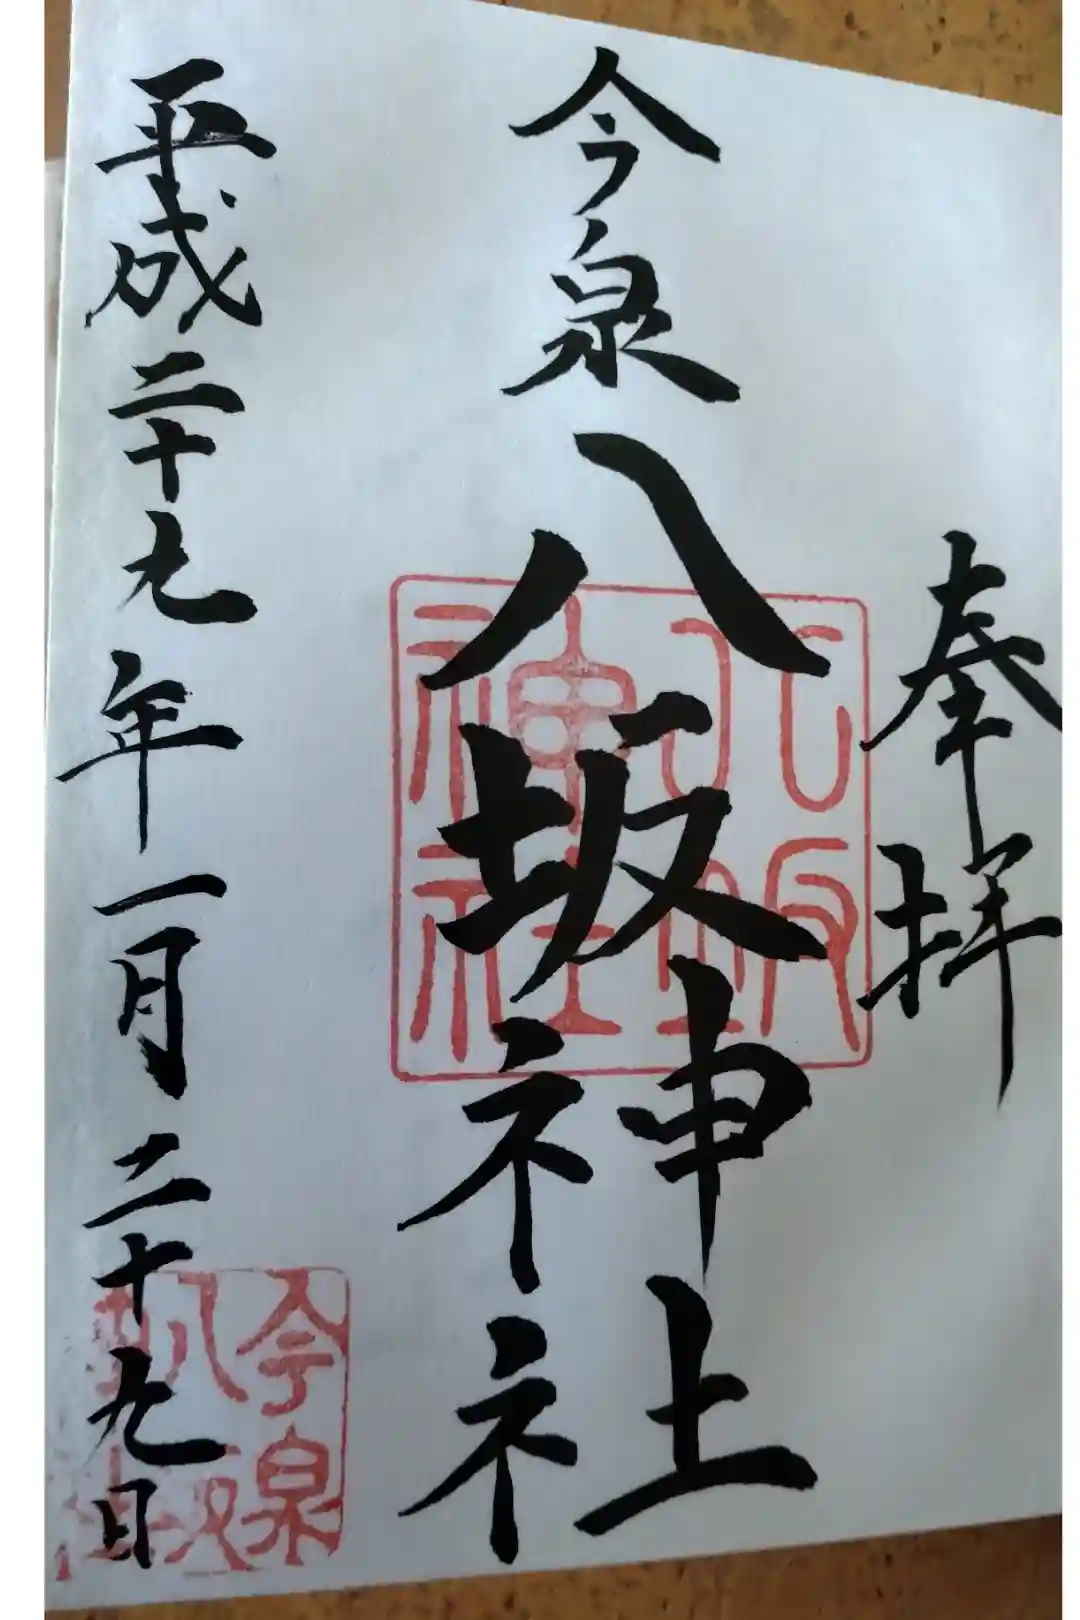 奉拝
今泉八坂神社
平成二十九年一月二十九日
八坂
神社
今泉
八坂